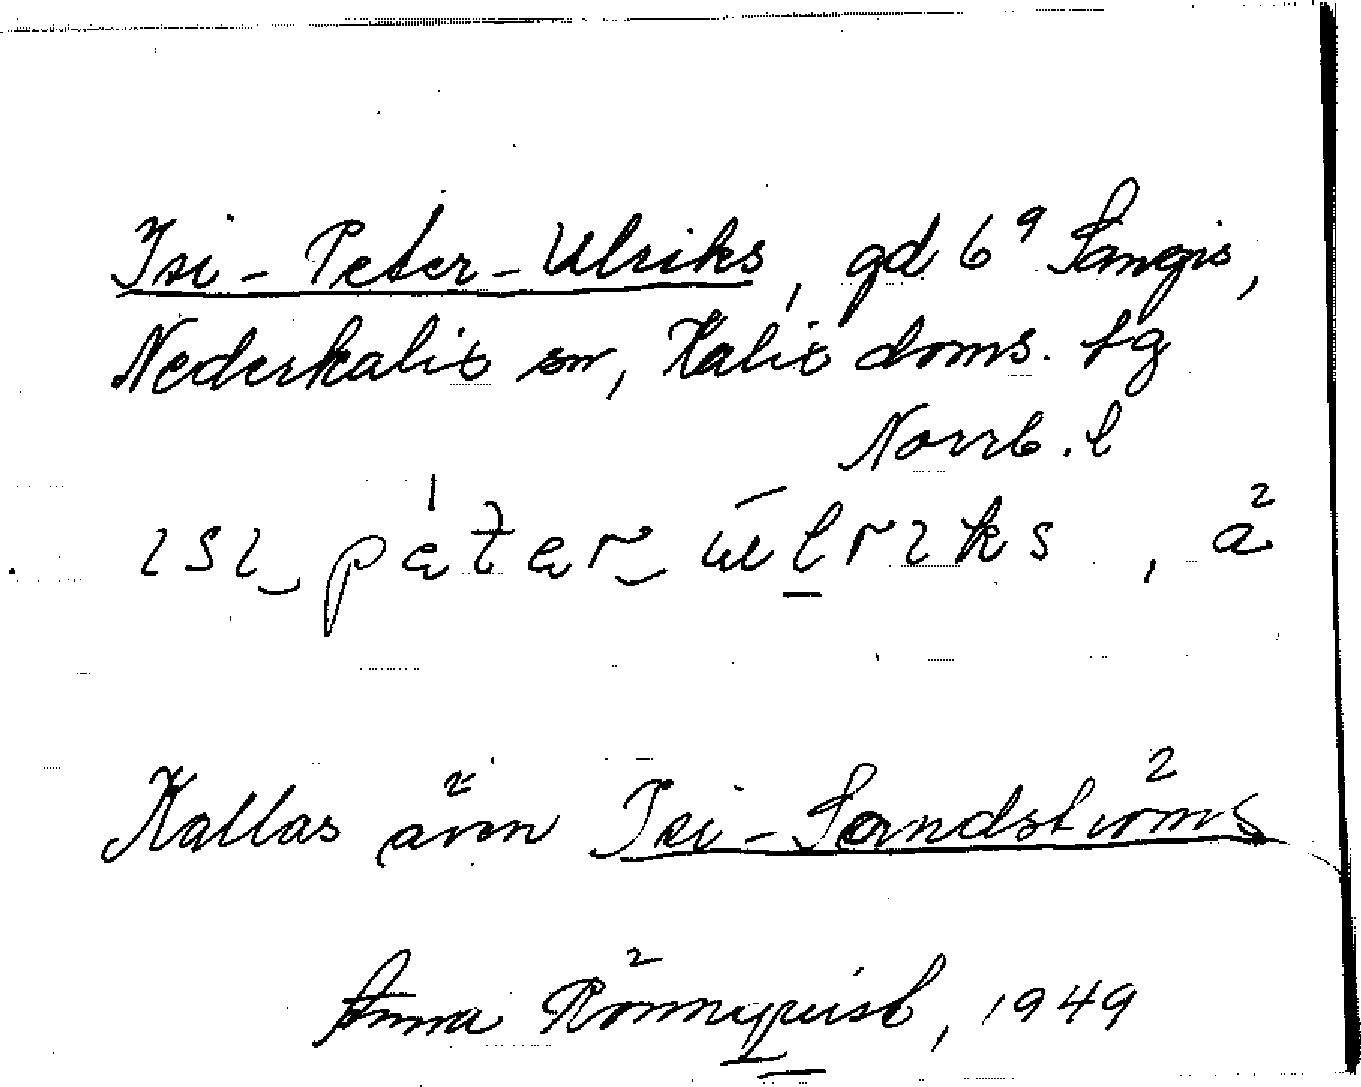 Isi-Peter-Ulriks, gd 6⁹ Sangis,
Nederkalix sn, Kalix doms. tg
Norrb. l
ɩsɩ‿pätär‿ulrɩks, a²
Kallas även Isi-Sandströms
Anna Rönnqvist, 1949